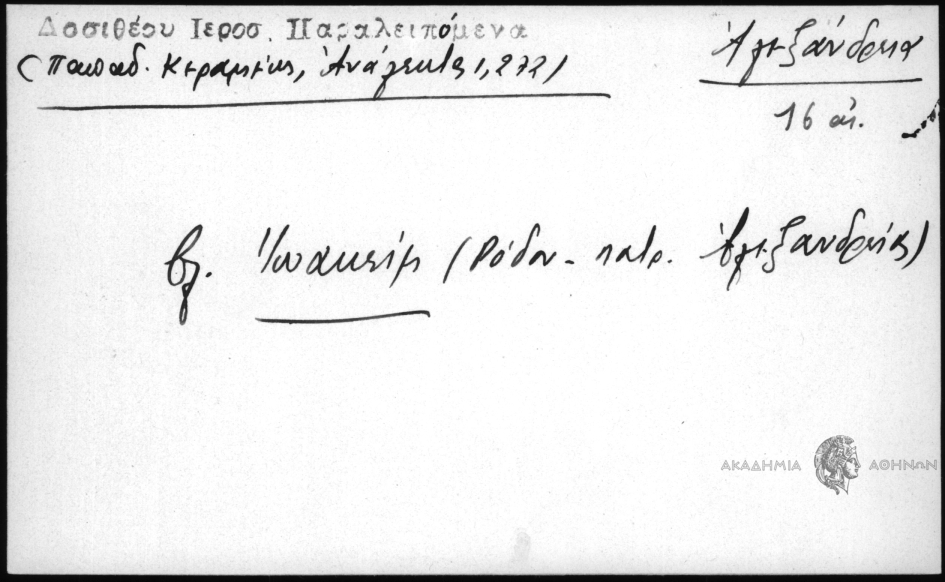 Δοσιθέου Ιεροσ. Παραλειπόμενα
(Παπαδ. Κεραμεύς, Ἀνάλεκτα 1, 272)
Ἀλεξάνδρεια
16 αἰ.
βλ. Ἰωακείμ (Ρόδου - πατρ. Ἀλεξανδρείας)
ΑΚΑΔΗΜΙΑ ΑΘΗΝΩΝ